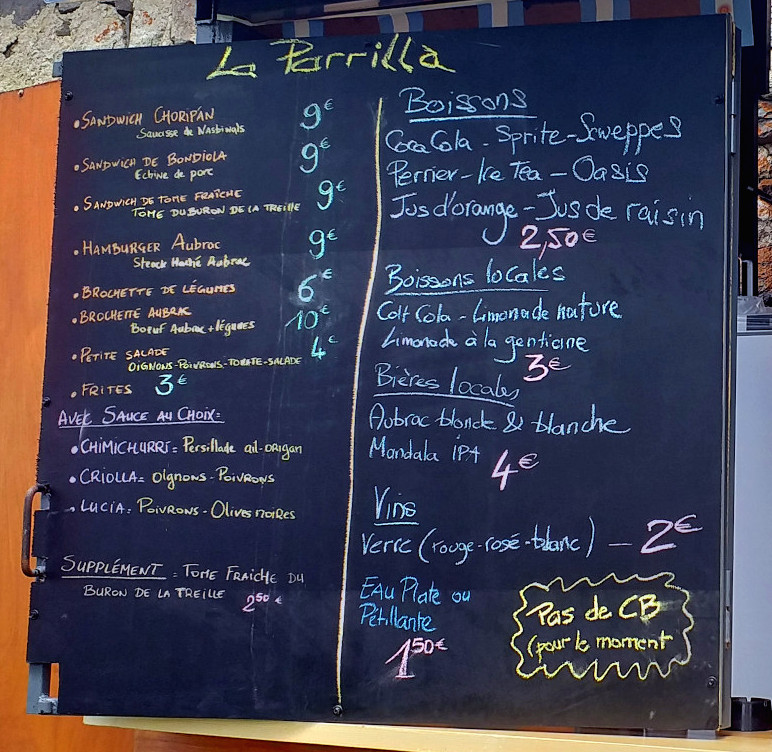 La Parrilla
• SANDWICH CHORIPÁN 9€
Saucisse de Nasbinals
• SANDWICH DE BONDIOLA 9€
Echine de porc
• SANDWICH DE TOME FRAÎCHE 9€
TOME DU BURON DE LA TREILLE
• HAMBURGER Aubrac 9€
Steack Haché Aubrac
• BROCHETTE DE LÉGUMES 6€
• BROCHETTE AUBRAC 10€
Boeuf Aubrac + légumes
• PETITE SALADE 4€
OIGNONS-POIVRONS-TOMATE-SALADE
• FRITES 3€
AVEC SAUCE AU CHOIX:
• CHIMICHURRI = Persillade ail-ORIGAN
• CRIOLLA: OIGNONS-POIVRONS
• LUCIA: POIVRONS-OLIVES NOIRES
SUPPLÉMENT : TOME FRAICHE DU
BURON DE LA TREILLE 2,50€
Boissons
Coca Cola - Sprite - Scweppes
Perrier - Ice Tea - Oasis
Jus d'orange - Jus de raisin
2,50€
Boissons locales
Colt Cola - Limonade nature
Limonade à la genticine
3€
Bières locales
Aubrac blonde & blanche
Mandala IPA 4€
Vins
Verre (rouge-rosé-blanc) — 2€
EAU Plate ou
Pétillante
1,50€
Pas de CB
(pour le moment